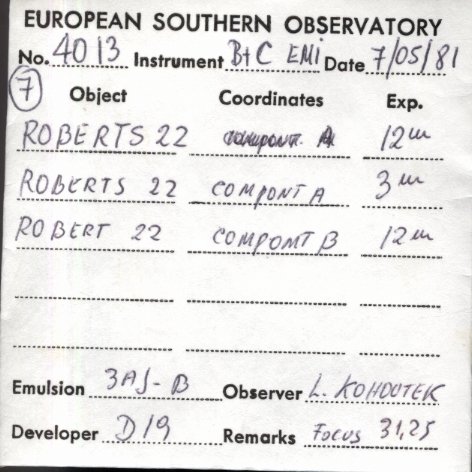 EUROPEAN SOUTHERN OBSERVATORY
No. 4013 Instrument B+C EMI Date 7/05/81
7 Object Coordinates Exp.
ROBERTS 22 COMPONT A 12m
ROBERTS 22 COMPONT A 3m
ROBERT 22 COMPOMT B 12m
Emulsion 3AJ-B Observer L. KOHOUTEK
Developer D19 Remarks Focus 31,25